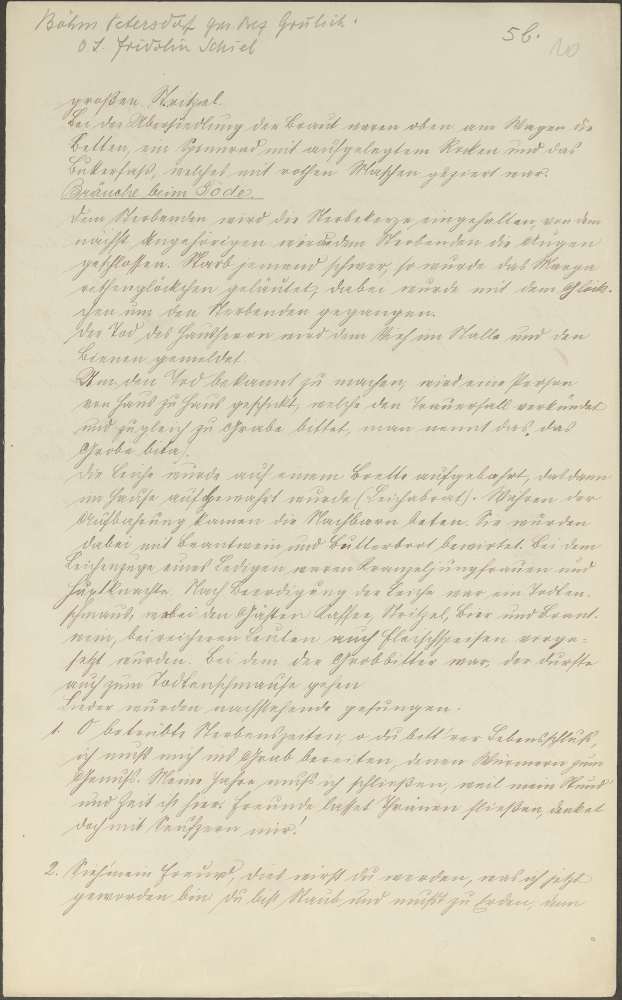 Böhm. Petersdorf Ger. Bez. Grulich.
O. L. Fridolin Schiel
56.
20
großen Stritzel.
Bei der Übersiedlung der Braut waren oben am Wagen die
Betten, ein Spinnrad mit aufgelegtem Rocken und das
Butterfaß, welches mit rothen Maschen geziert war.
Bräuche beim Tode.
Dem Sterbenden wird die Sterbekerze eingehalten, von den
nächst. Angehörigen werden dem Sterbenden die Augen
geschlossen. Starb jemand schwer, so wurde das
glöckchen geläutet, dabei wurde mit dem Glöck-
chen um den Sterbenden gegangen.
Der Tod des Hausherrn wird dem Vieh im Stalle und den
Bienen gemeldet.
Um den Tod bekannt zu machen, wird eine Person
von Haus zu Haus geschickt, welche den Trauerfall verkündet
und zugleich zu Grabe bittet, man nennt das, das
Grobe bita.
Die Leiche wurde auf einem Brette aufgebahrt, das dann
im Hause aufgewahrt wurde (Leichabrat). Währen der
Aufbahrung kamen die Nachbarn beten. Sie wurden
dabei mit Brantwein und Butterbrot bewirtet. Bei dem
Leichenzuge eines Ledigen waren Kranzeljungfrauen und
. Nach Beerdigung der Leiche war ein Todten-
schmaus, wobei den Gästen Kaffee, Stritzel, Bier und Brant-
wein, bei reicheren Leuten auch Fleischspeisen vorge-
setzt wurden. Bei dem der Grobbitter war, der durfte
auch zum Todtenschmause gehen.
Lieder wurden nachstehende gesungen.
1. O betrübte Sterbenszeiten, o du Lebensschluß,
ich muß mich ins Grab bereiten, denen Würmern zum
Genuß. Meine Jahre muß ich schließen, weil mein Stund
und Zeit ist hier. Freunde lasset Thränen fließen, denket
doch mit Seufzern mir!
2. Sieh mein Freund, dies wirst du werden, was ich jetzt
geworden bin du bist Staub und mußt zu Erden, denn